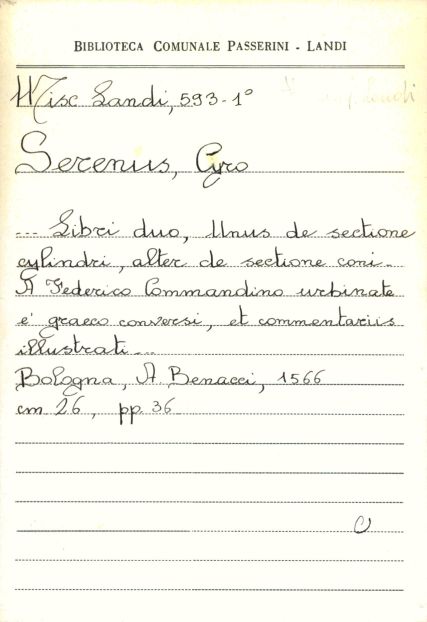 BIBLIOTECA COMUNALE PASSERINI - LANDI
Misc Landi, 593-1°
Serenus, Cyro
... Libri duo, Unus de sectione
cylindri, alter de sectione coni.
A Federico Commandino urbinate
e' graeco conversi, et commentariis
illustrati...
Bologna, A. Benacci, 1566
cm 26, pp. 36